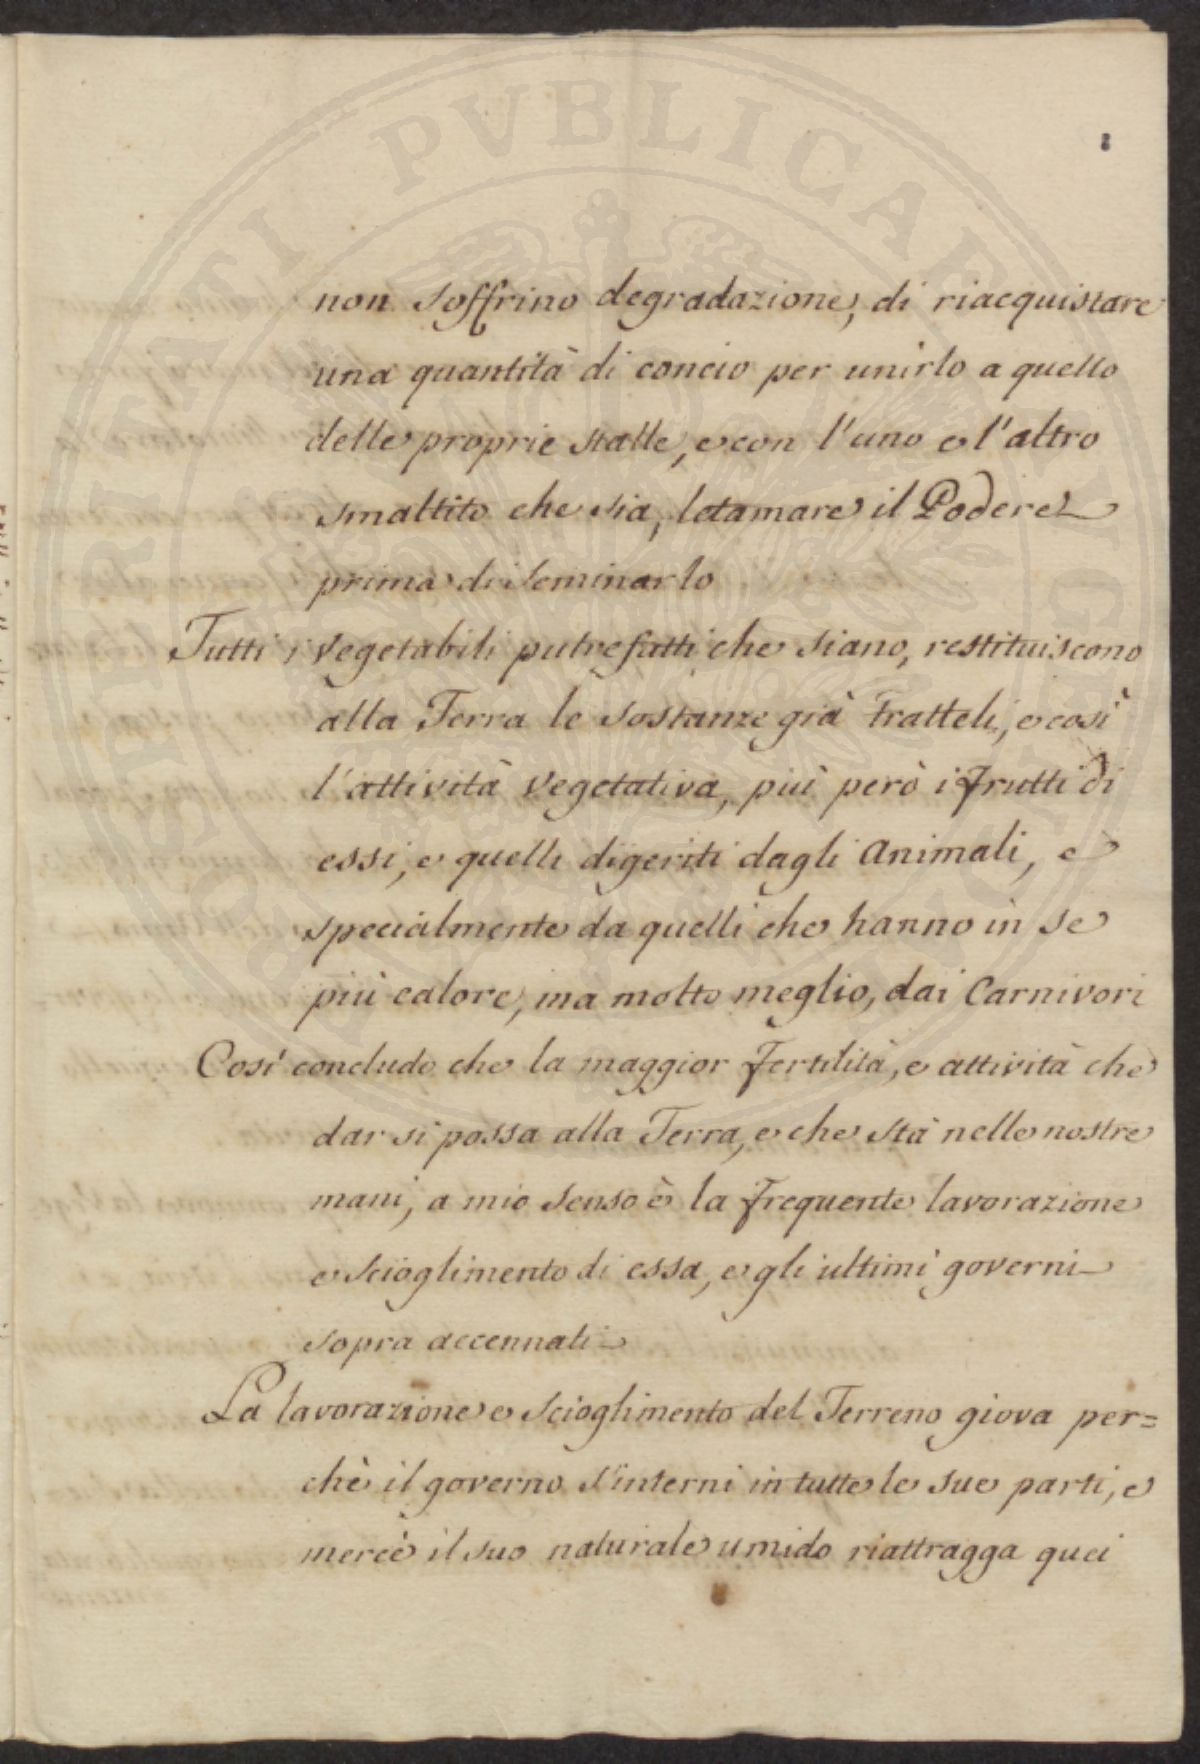 non soffrino degradazione, di riacquistare
una quantità di concio per unirlo a quello
delle proprie stalle, e con l'uno e l'altro
smaltito che sia, letamare il Podere
prima di seminarlo
Tutti i vegetabili putrefatti che siano, restituiscono
alla Terra le sostanze già tratteli, e così
l'attività vegetativa, più però i frutti di
essi, e quelli digeriti dagli animali, e
specialmente da quelli che hanno in se
più calore, ma molto meglio, dai Carnivori
Così concludo che la maggior fertilità, e attività che
dar si possa alla Terra, e che stà nelle nostre
mani, a mio senso è la frequente lavorazione
e scioglimento di essa, e gli ultimi governi
sopra accennati
La lavorazione e scioglimento del Terreno giova per=
chè il governo s'interni in tutte le sue parti, e
mercè il suo naturale umido riattragga quei